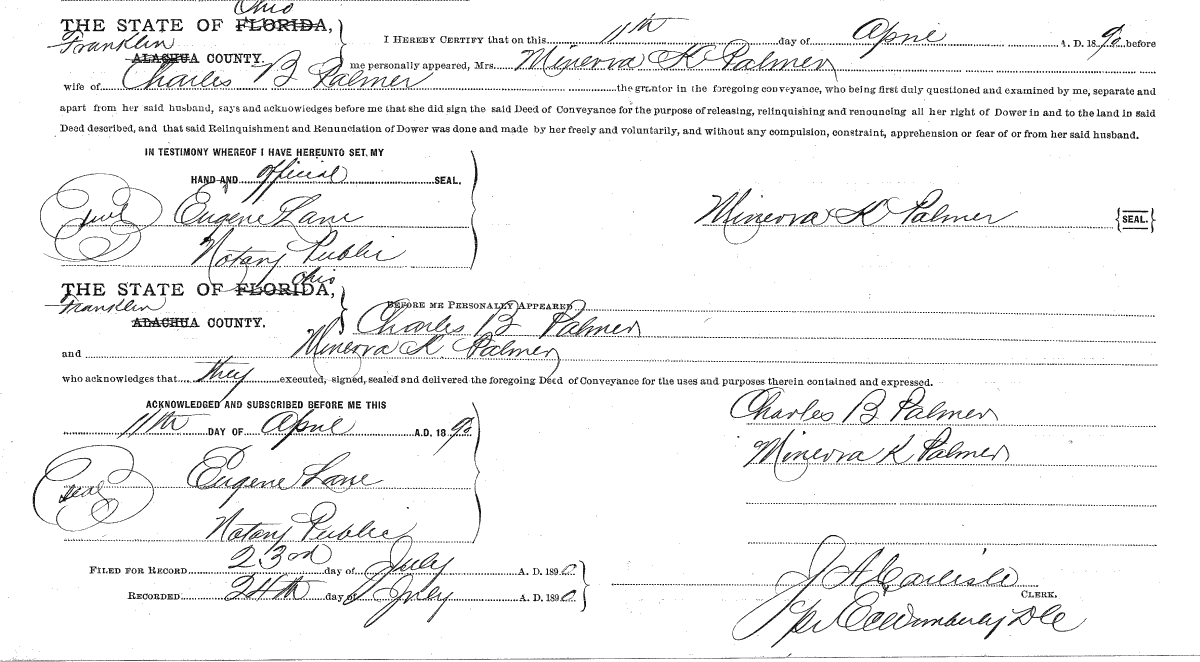 Ohio
THE STATE OF FLORIDA,
Franklin
ALACHUA COUNTY.
I HEREBY CERTIFY that on this 11th day of April A. D. 1890 before
me personally appeared, Mrs. Minerva K Palmer
wife of Charles B Palmer the grantor in the foregoing conveyance, who being first duly questioned and examined by me, separate and
apart from her said husband, says and acknowledges before me that she did sign the said Deed of Conveyance for the purpose of releasing, relinquishing and renouncing all her right of Dower in and to the land in said
Deed described, and that said Relinquishment and Renunciation of Dower was done and made by her freely and voluntarily, and without any compulsion, constraint, apprehension or fear of or from her said husband.
IN TESTIMONY WHEREOF I HAVE HEREUNTO SET, MY
HAND AND official SEAL.
Seal Eugene Lane
Minerva K Palmer {SEAL.}
Notary Public
Ohio
THE STATE OF FLORIDA,
Franklin
ALACHUA COUNTY.
BEFORE ME PERSONALLY APPEARED
Charles B Palmer
and Minerva K Palmer
who acknowledges that they executed, signed, sealed and delivered the foregoing Deed of Conveyance for the uses and purposes therein contained and expressed.
ACKNOWLEDGED AND SUBSCRIBED BEFORE ME THIS
11th DAY OF April A.D. 1890
Charles B Palmer
Minerva K Palmer
Seal Eugene Lane
Notary Public
FILED FOR RECORD 23rd day of July A. D. 1890
RECORDED 24th day of July A. D. 1890
J A Carlisle
CLERK.
per E C Wimberly DC